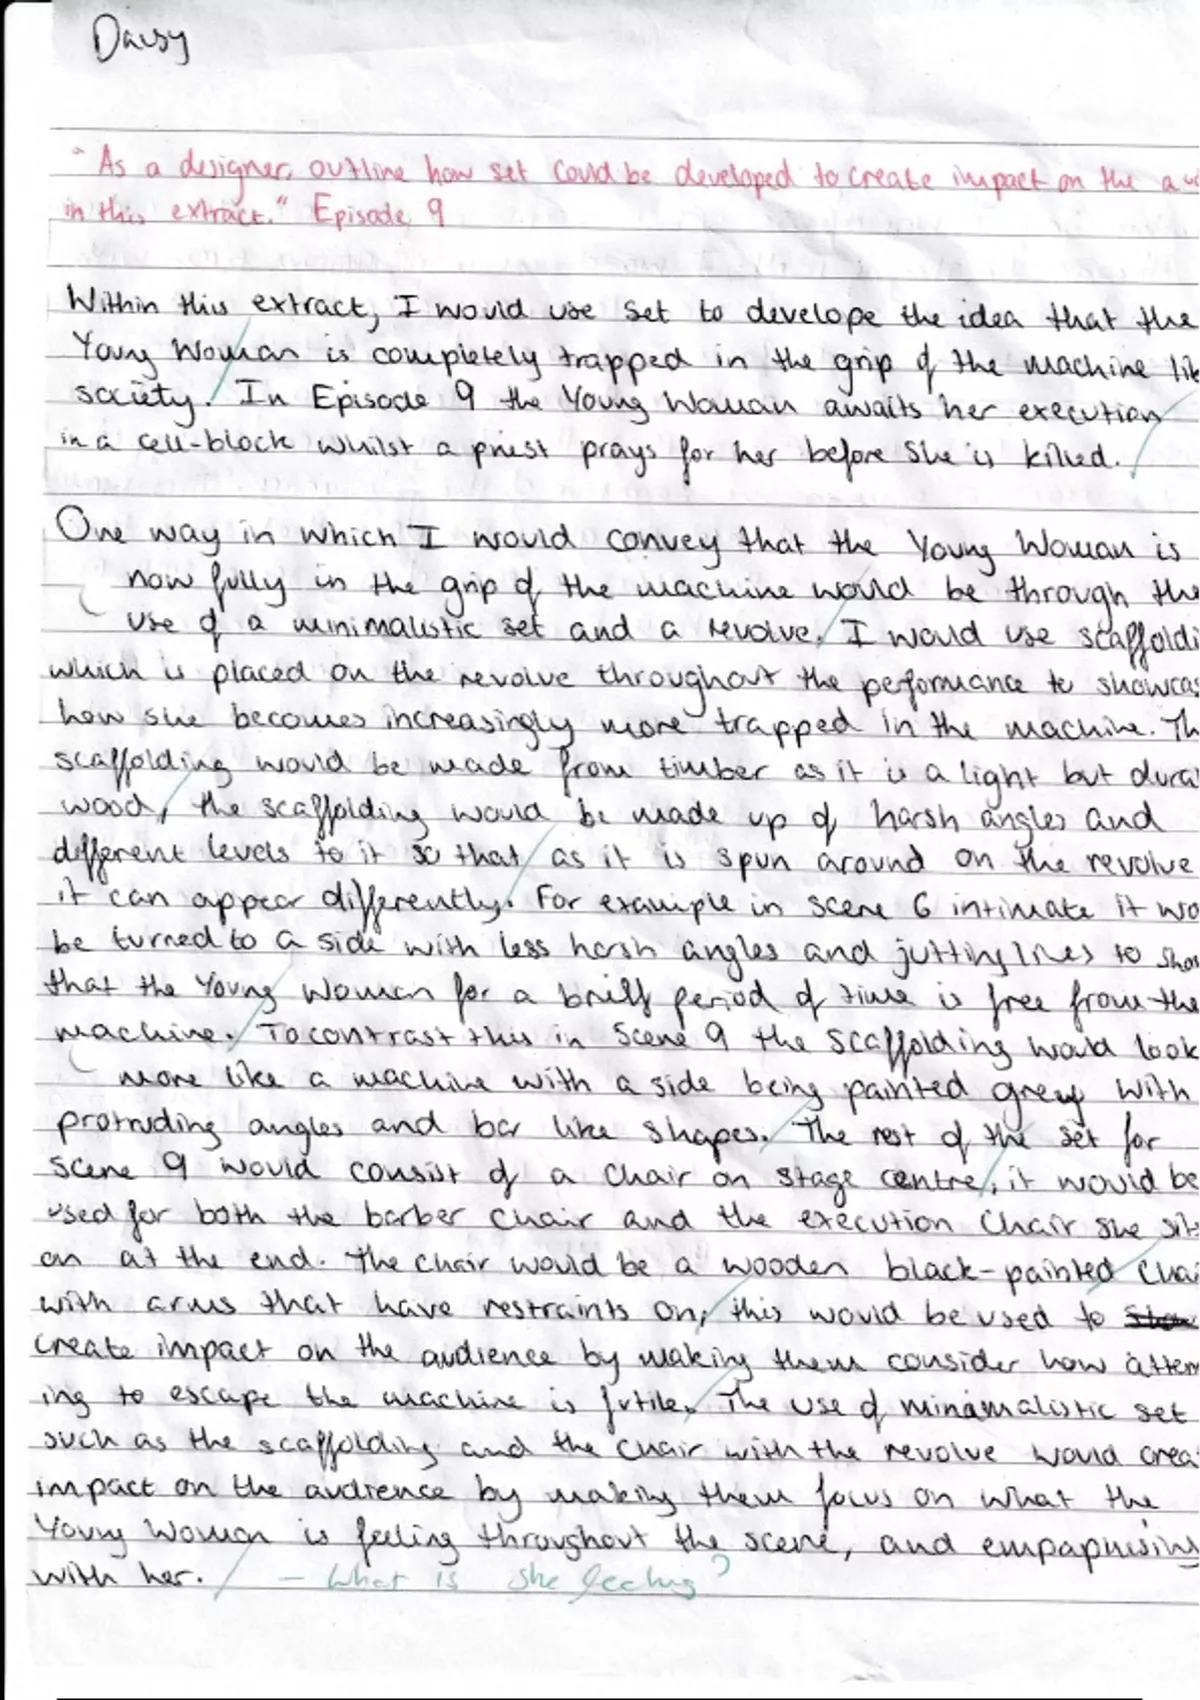 Daisy
"As a designer, outline how set could be developed to create impact on the au
in this extract." Episode 9
Within this extract, I would use set to develope the idea that the
Young Woman is completely trapped in the grip of the machine lik
society. In Episode 9 the Young Woman awaits her execution
in a cell-block whilst a priest prays for her before she is killed.
One way in which I would convey that the Young Woman is
now fully in the grip of the machine would be through the
use of a minimalistic set and a revolve. I would use scaffoldi
which is placed on the revolve throughout the performance to showcas
how she becomes increasingly more trapped in the machine. Th
scaffolding would be made from timber as it is a light but dura
wood, the scaffolding would be made up of harsh angles and
different levels to it so that as it is spun around on the revolve
it can appear differently. For example in scene 6 intimate it wo
be turned to a side with less harsh angles and jutting lines to show
that the Young Woman for a brief period of time is free from the
machine. To contrast this in Scene 9 the scaffolding would look
more like a machine with a side being painted grey with
protruding angles and bar like shapes. The rest of the set for
scene 9 would consist of a chair on stage centre, it would be
used for both the barber chair and the execution chair she sits
on at the end. The chair would be a wooden black-painted chai
with arms that have restraints on, this would be used to
create impact on the audience by making them consider how attem
ing to escape the machine is futile. The use of minamalistic set
such as the scaffolding and the chair with the revolve would crea
impact on the audience by making them focus on what the
Young Woman is feeling throughout the scene, and empaphising
with her. - What is she feeling?